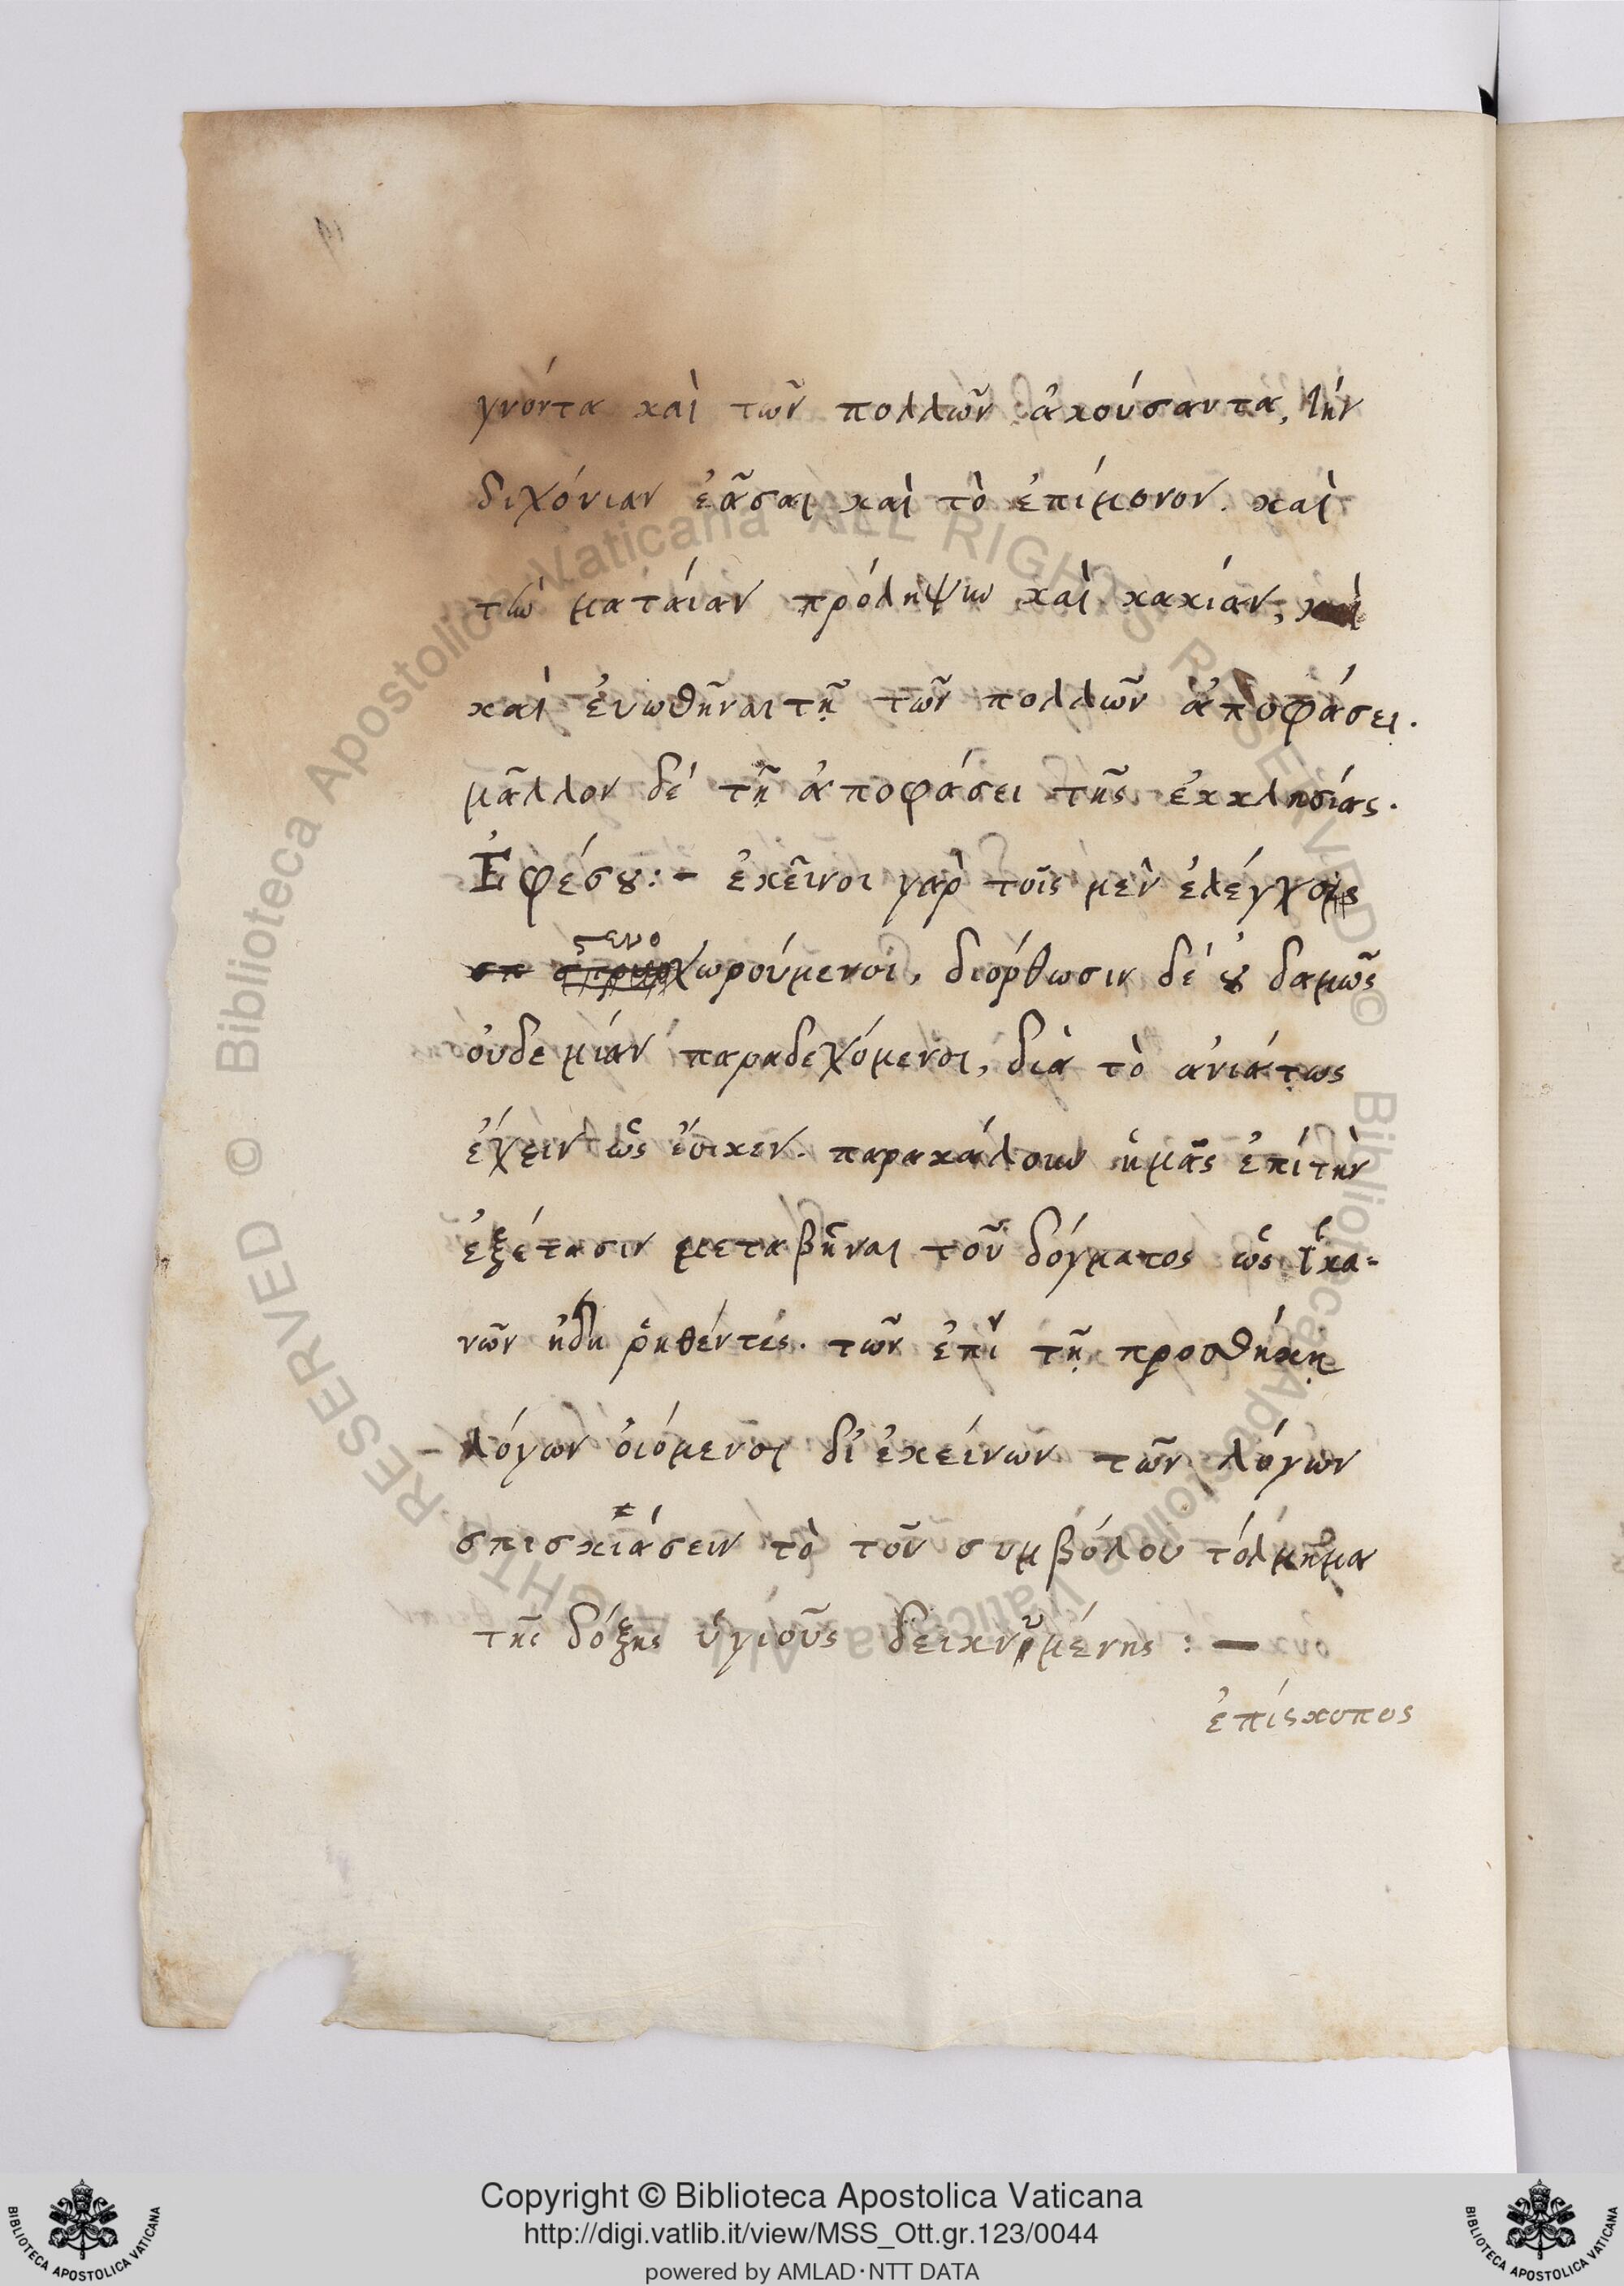 γνόντα καὶ τῶν πολλῶν ἀκούσαντα, τήν
διχόνιαν ἐᾶσαι καὶ τὸ ἐπίμονον. καὶ
τὴν ματαίαν πρόληψιν καὶ κακίαν, καὶ
καὶ ἑνωθῆναι τῇ τῶν πολλῶν ἀποφάσει.
μᾶλλον δέ τῇ ἀποφάσει τῆς ἐκκλησίας.
Ἐφέσου:- ἐκεῖνοι γὰρ τοῖς μὲν ἐλέγχοις
στενοχωρούμενοι, διόρθωσιν δέ οὐδαμῶς
οὐδεμίαν παραδεχόμενοι, διὰ τὸ ἀνιάτως
ἔχειν ὡς ἔοικεν. παρακάλουν ἡμᾶς ἐπί τὴν
ἐξέτασιν μεταβῆναι τοῦ δόγματος ὡς ἱκα-
νῶν ἤδη ῥηθέντες. τῶν ἐπὶ τῇ προσθήκῃ
- λόγων οἰόμενοι δι' ἐκείνων τῶν λόγων
σπισκιάσειν τὸ τοῦ συμβόλου τόλμημα
τῆς δόξης ὑγιοῦς δεικνυμένης: —
ἐπίσκοπος
Copyright © Biblioteca Apostolica Vaticana
http://digi.vatlib.it/view/MSS_Ott.gr.123/0044
powered by AMLAD·NTT DATA
BIBLIOTECA APOSTOLICA VATICANA
BIBLIOTECA APOSTOLICA VATICANA
© Biblioteca Apostolica Vaticana ALL RIGHTS RESERVED © Biblioteca Apostolica Vaticana ALL RIGHTS RESERVED